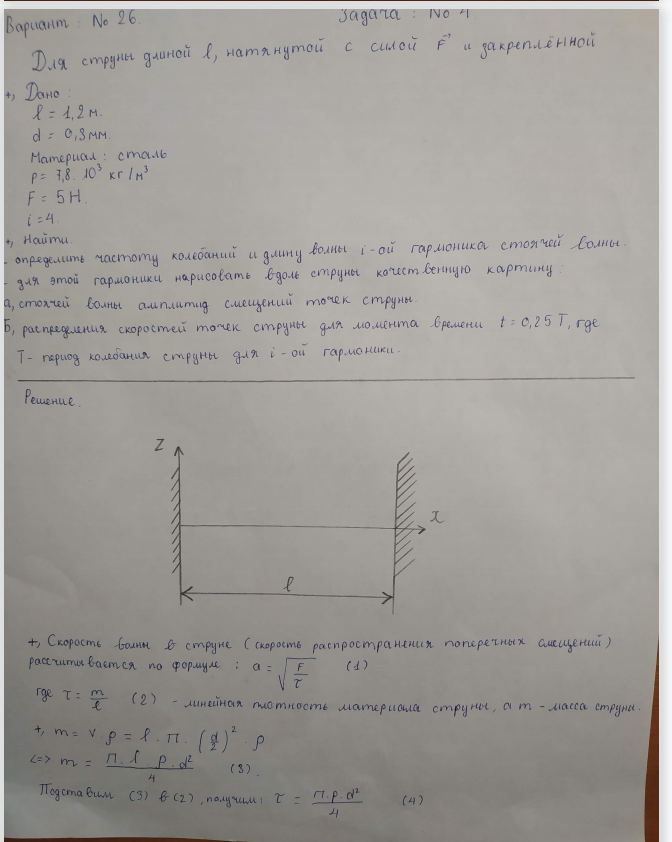 Вариант: No 26. Задача: No 4
Для струны длиной l, натянутой с силой F⃗ и закреплённой
+, Дано:
l = 1,2 м.
d = 0,3 мм.
Материал: сталь
ρ = 7,8. 10³ кг/м³
F = 5 Н.
i = 4.
+, Найти.
- определить частоту колебаний и длину волны i-ой гармоника стоячей волны.
- для этой гармоники нарисовать вдоль струны кочественную картину:
а, стоячей волны амплитид смещений точек струны.
Б, распределения скоростей точек струны для момента времени t = 0,25 T, где
T - период колебания струны для i-ой гармоники.
Решение.
Z
x
l
+, Скорость волны в струне (скорость распространения поперечных смещений)
рассчитывается по формуле: a = √(F/τ) (1)
где τ = m/l (2) - линейная плотность материала струны, а m - масса струны.
+, m = V. ρ = l. П. (d/2)². ρ
<=> m = П. l ρ. d²/4 (3).
Подставим (3) в (2), получим: τ = П. ρ. d²/4 (4)